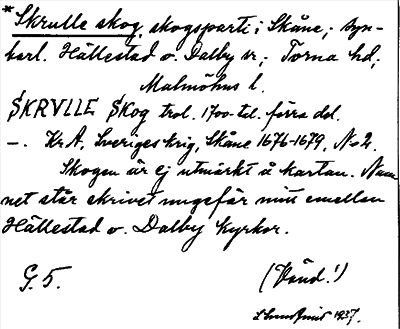 * Skrulle skog, skogsparti i Skåne, syn-
barl. Hällestad o. Dalby sn; Torna hd,
Malmöhus l.
SKRVLLE Skog trol. 1700-tal. förra del.
–. Kr A, Sveriges krig, Skåne 1676-1679, No 2.
Skogen är ej utmärkt å kartan. Nam-
net står skrivet ungefär mitt emellan
Hällestad o. Dalby kyrkor.
G. 5.
(Vänd!)
1937.